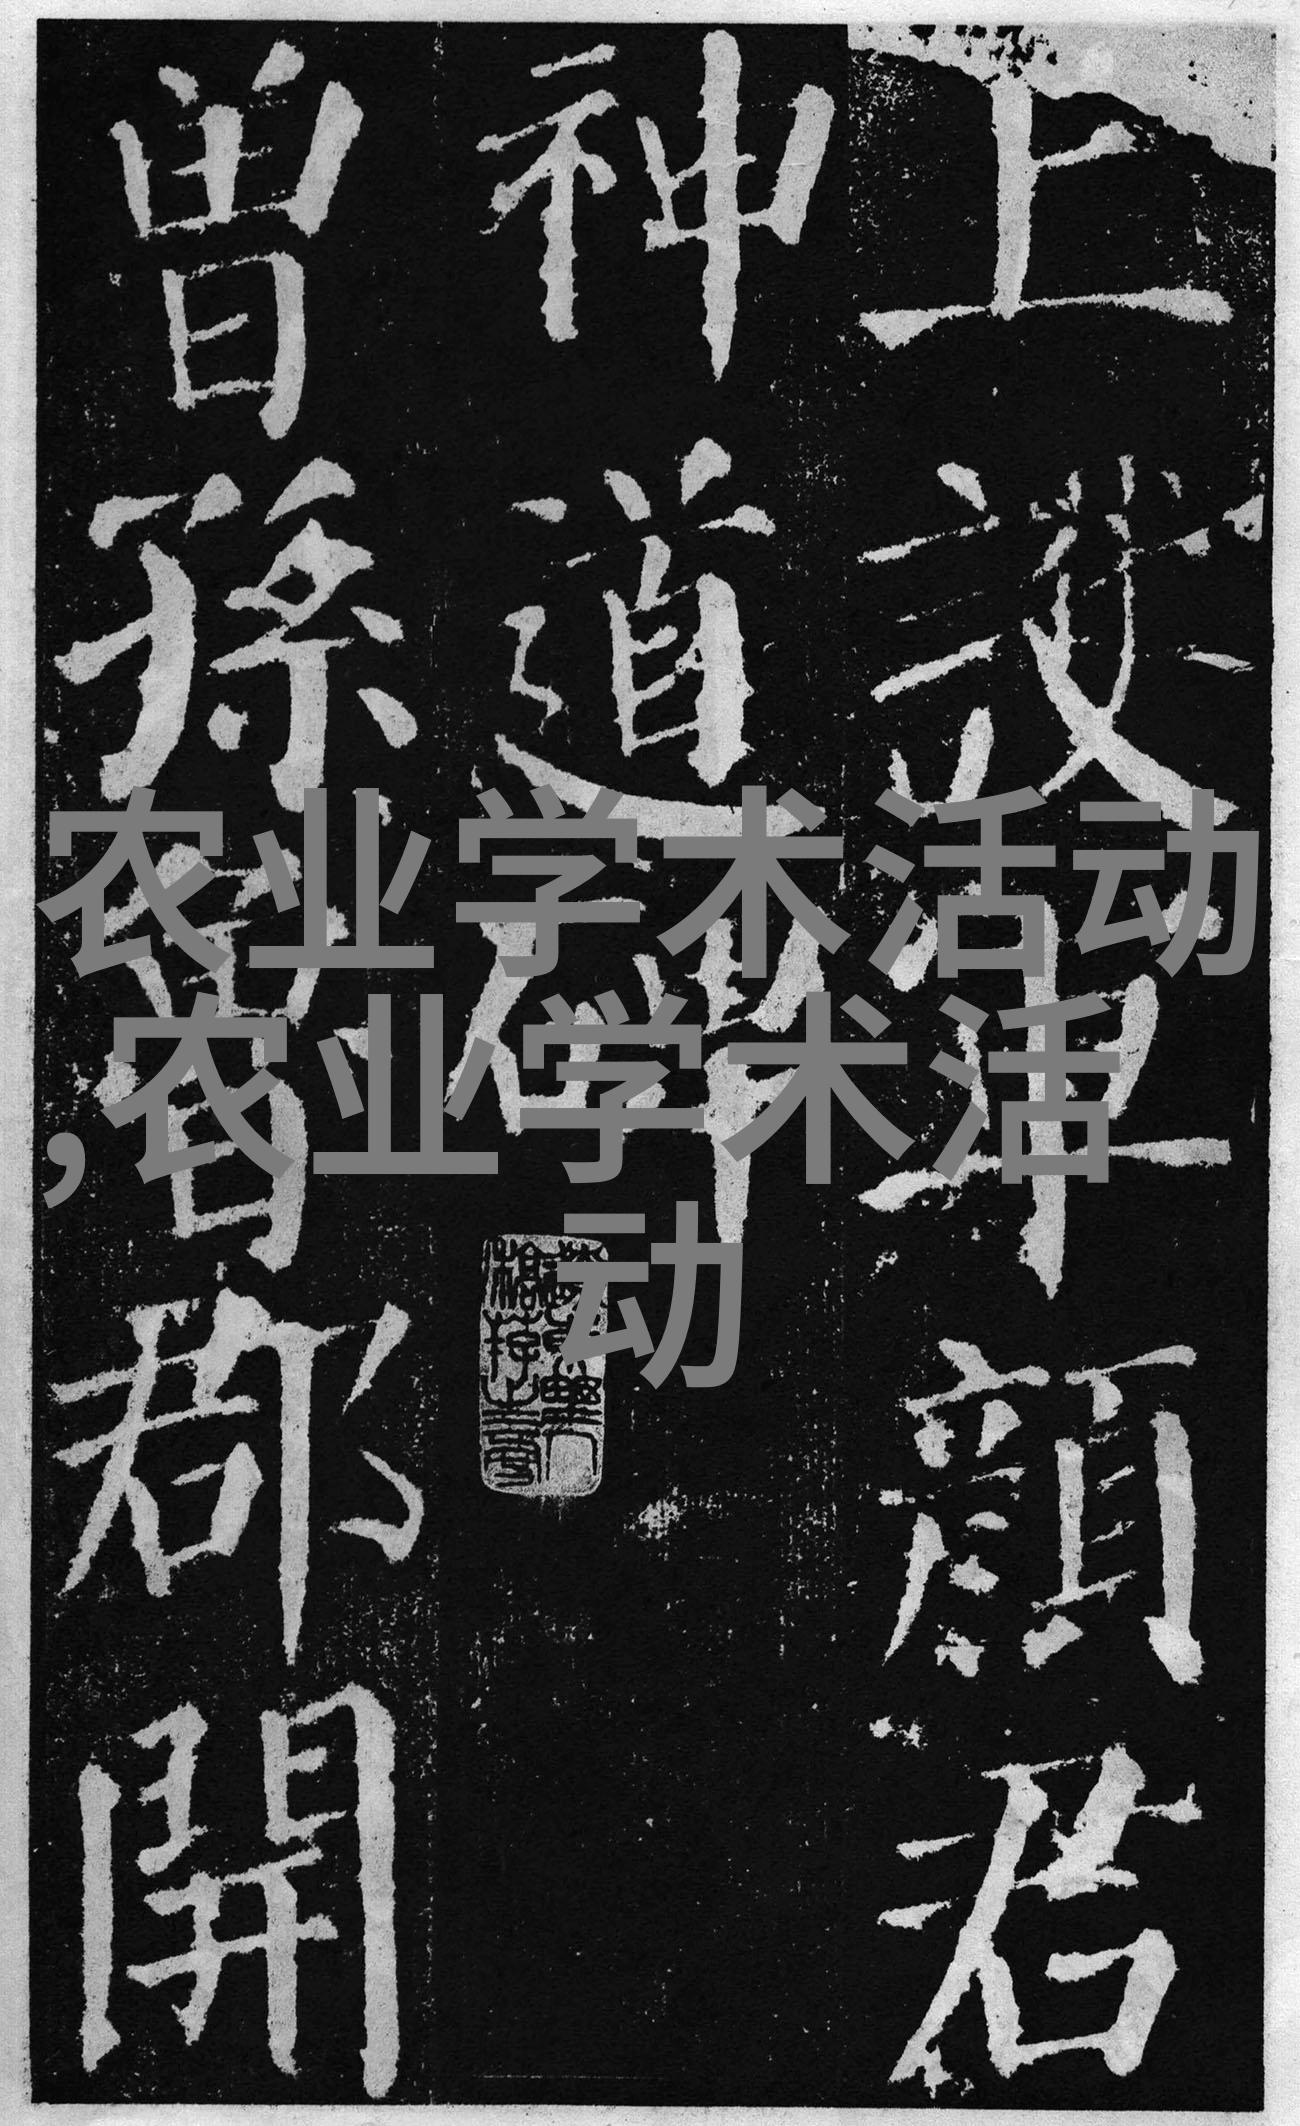 上護軍顏君
神道碑
曾孫魯郡開
农业学术活动
,农业学术活
动